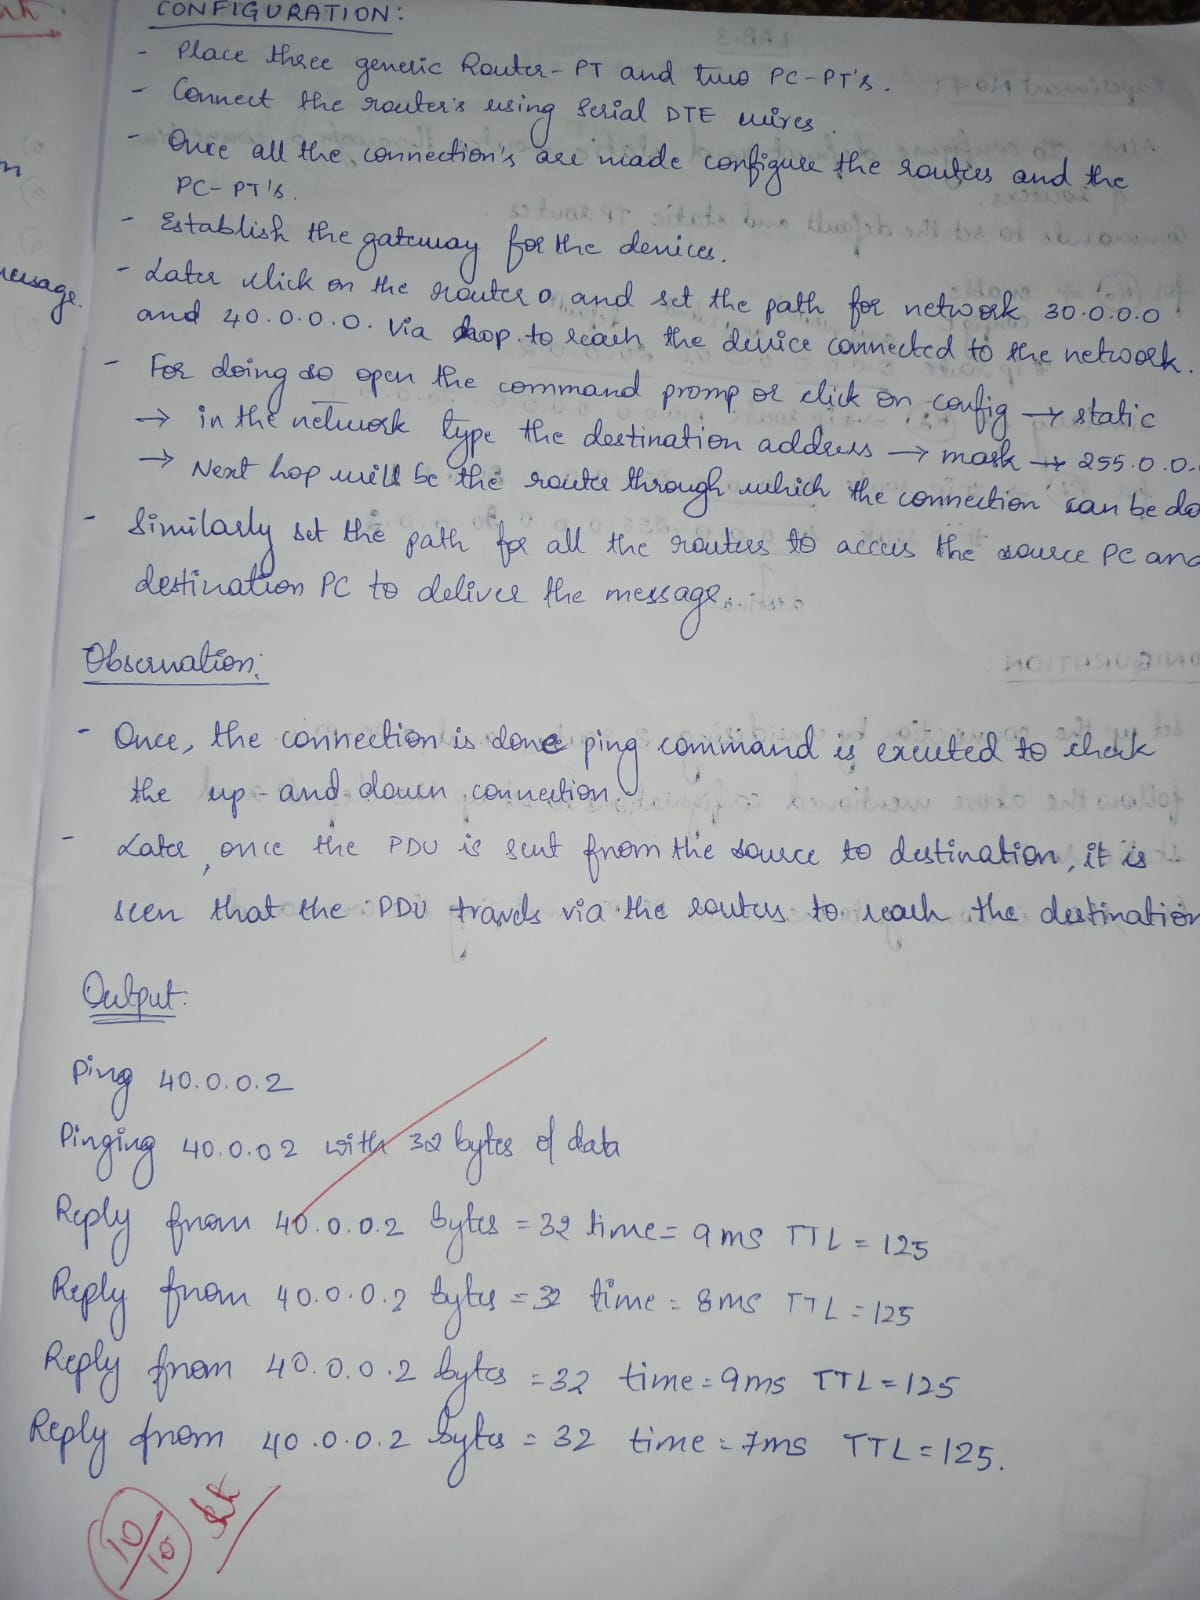 CONFIGURATION:
- Place three generic Router-PT and two PC-PT's.
- Connect the router's using Serial DTE wires.
- Once all the connection's are made configure the routers and the
PC-PT's.
- Establish the gateway for the devices.
message.
- Later click on the router 0, and set the path for network 30.0.0.0
and 40.0.0.0. Via hop to reach the device connected to the network.
- For doing so open the command promp or click on config → static
→ in the network type the destination address → mask → 255.0.0.
→ Next hop will be the router through which the connection can be do
- Similarly set the path for all the routers to access the source PC and
destination PC to deliver the message.
Observation:
- Once, the connection is done ping command is excuted to check
the up-and-down connection.
- Later, once the PDU is sent from the source to destination, it is
seen that the PDU travels via the routers to reach the destination
Output:
Ping 40.0.0.2
Pinging 40.0.02 with 32 bytes of data
Reply from 40.0.0.2 bytes = 32 time = 9ms TTL = 125
Reply from 40.0.0.2 bytes = 32 time = 8ms TTL = 125
Reply from 40.0.0.2 bytes = 32 time = 9ms TTL = 125
Reply from 40.0.0.2 bytes = 32 time = 7ms TTL = 125.
10/10